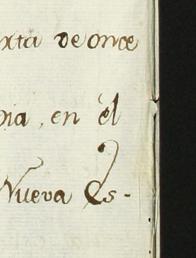 xta de once
pia, en él
Nueva Es-